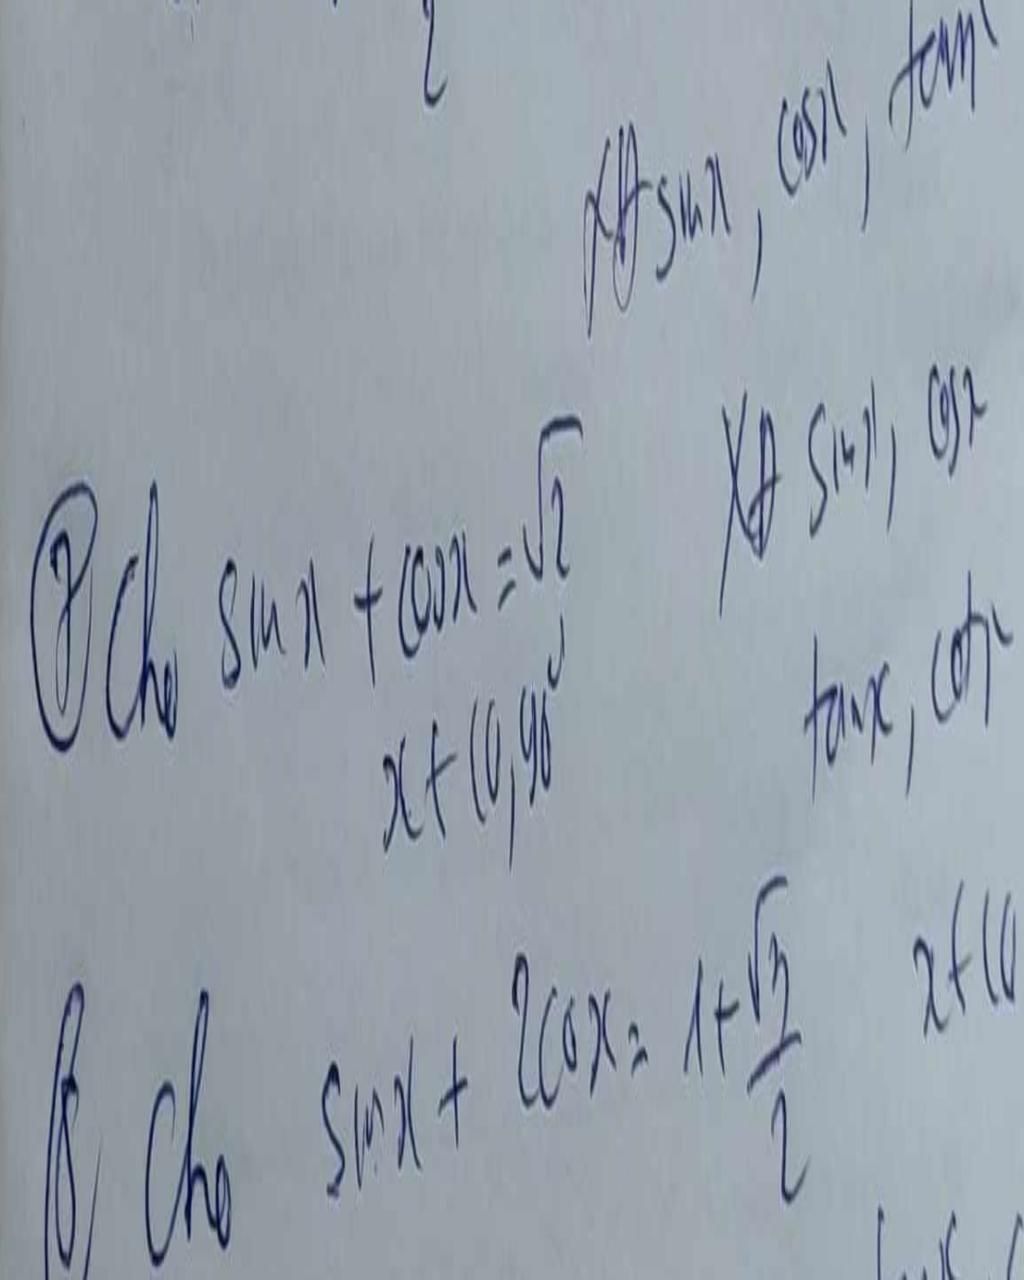 2
sinx, cosx, tan
⑦ Cho sinx + cosx = √2 sinx, cosx
x ∈ (0, 90°) tanx, cotx
8, Cho sinx + 2cosx = 1 + √3/2 x ∈ (0